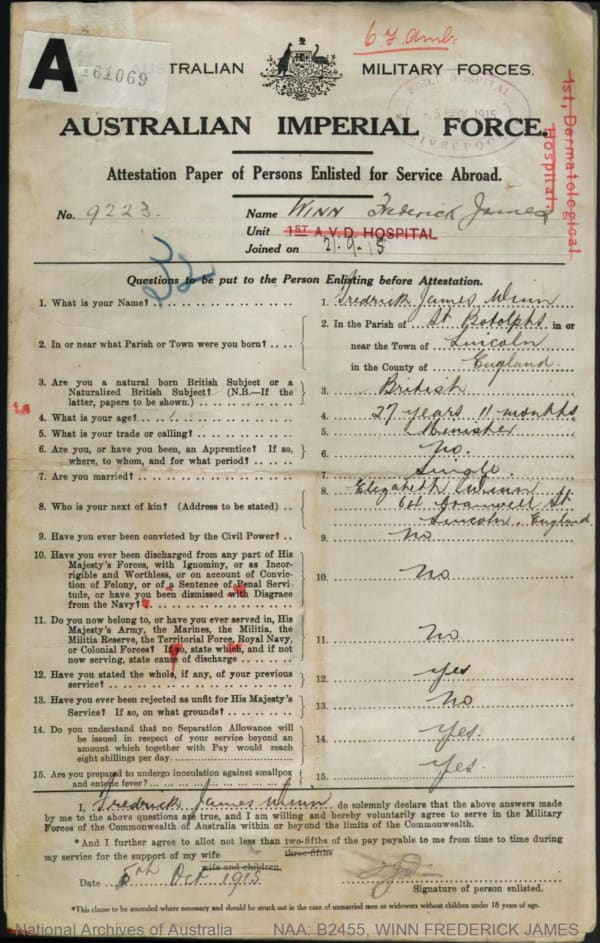 6 F. Amb.
A
161069
AUSTRALIAN MILITARY FORCES.
FIELD HOSPITAL
1915
LIVERPOOL
AUSTRALIAN IMPERIAL FORCE.
1st, Dermatological
Hospital.
Attestation Paper of Persons Enlisted for Service Abroad.
No. 9223. Name WINN Frederick James
Unit 1ST A.V.D. HOSPITAL
Joined on 21-9-15
32
Questions to be put to the Person Enlisting before Attestation.
1. What is your Name? 1. Fredrick James Winn
2. In or near what Parish or Town were you born? 2. In the Parish of St Botolphs in or
near the Town of Lincoln
in the County of England
3. Are you a natural born British Subject or a
Naturalized British Subject? (N.B.—If the
latter, papers to be shown.) 3. British
4. What is your age? 4. 27 years 11 months
5. What is your trade or calling? 5. Minister
6. Are you, or have you been, an Apprentice? If so,
where, to whom, and for what period? 6. No.
7. Are you married? 7. Single
8. Who is your next of kin? (Address to be stated) 8. Elizabeth Winn
St
Lincoln. England
9. Have you ever been convicted by the Civil Power? 9. No
10. Have you ever been discharged from any part of His
Majesty's Forces, with Ignominy, or as Incor-
rigible and Worthless, or on account of Convic-
tion of Felony, or of a Sentence of Penal Servi-
tude, or have you been dismissed with Disgrace
from the Navy? 10. No
11. Do you now belong to, or have you ever served in, His
Majesty's Army, the Marines, the Militia, the
Militia Reserve, the Territorial Force, Royal Navy,
or Colonial Forces? If so, state which, and if not
now serving, state cause of discharge 11. No
12. Have you stated the whole, if any, of your previous
service? 12. yes
13. Have you ever been rejected as unfit for His Majesty's
Service? If so, on what grounds? 13. No
14. Do you understand that no Separation Allowance will
be issued in respect of your service beyond an
amount which together with Pay would reach
eight shillings per day. 14. Yes.
15. Are you prepared to undergo inoculation against smallpox
and enteric fever? 15. Yes.
I, Fredrick James Winn do solemnly declare that the above answers made
by me to the above questions are true, and I am willing and hereby voluntarily agree to serve in the Military
Forces of the Commonwealth of Australia within or beyond the limits of the Commonwealth.
*And I further agree to allot not less than two-fifths of the pay payable to me from time to time during
three-fifths
my service for the support of my wife
wife and children.
Date 6th Oct 1915
Signature of person enlisted.
*This clause to be amended where necessary and should be struck out in the case of unmarried men or widowers without children under 18 years of age.
National Archives of Australia NAA: B2455, WINN FREDERICK JAMES